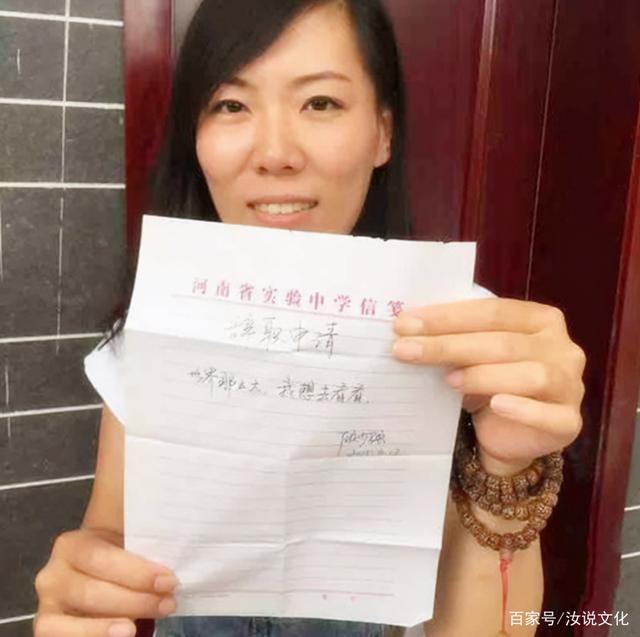 河南省实验中学信笺
辞职申请
世界那么大，我想去看看。
百家号/汝说文化